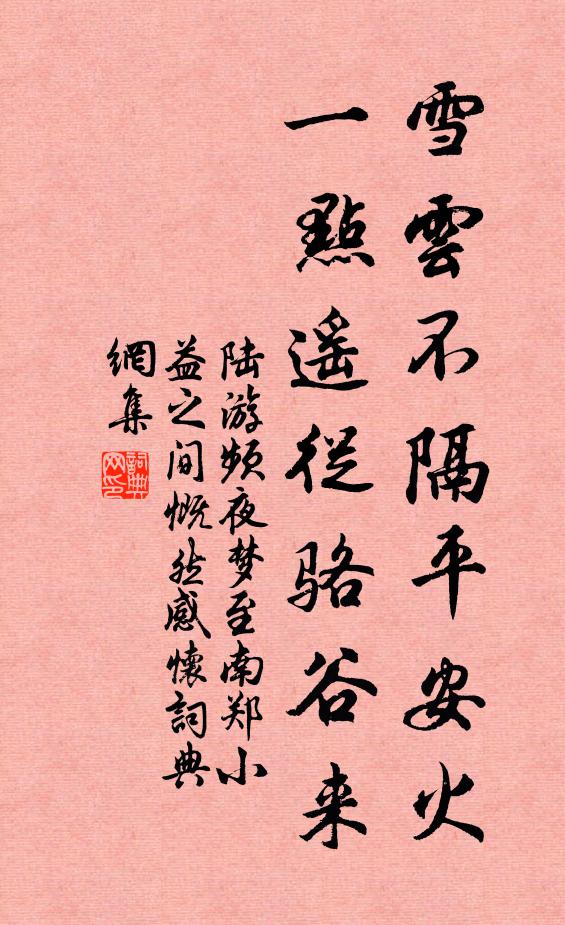 雪雲不隔平安火
一點遥從骆谷来
陆游频夜梦至南郑小
益之间慨然感懷詞典
網集
詞典
网印